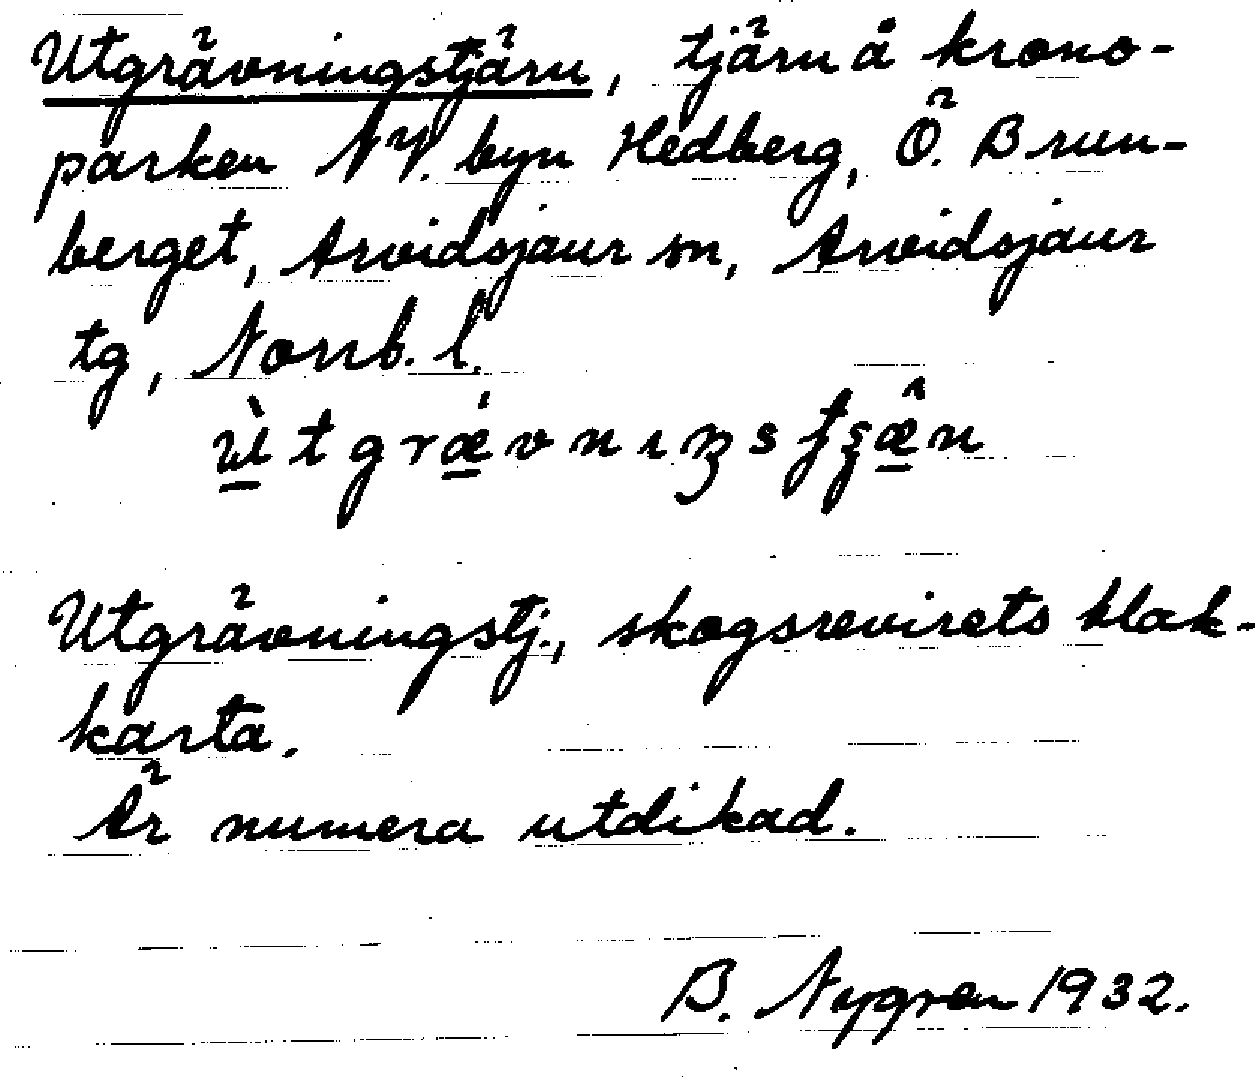 Utgrävningstjärn, tjärn å krono-
parken NV. byn Hedberg, Ö. Brun-
berget, Arvidsjaur sn, Arvidsjaur
tg, Norrb. l.
Utgrävningstj., skogsrevirets blak-
karta.
Är numera utdikad.
B. Nygren 1932.